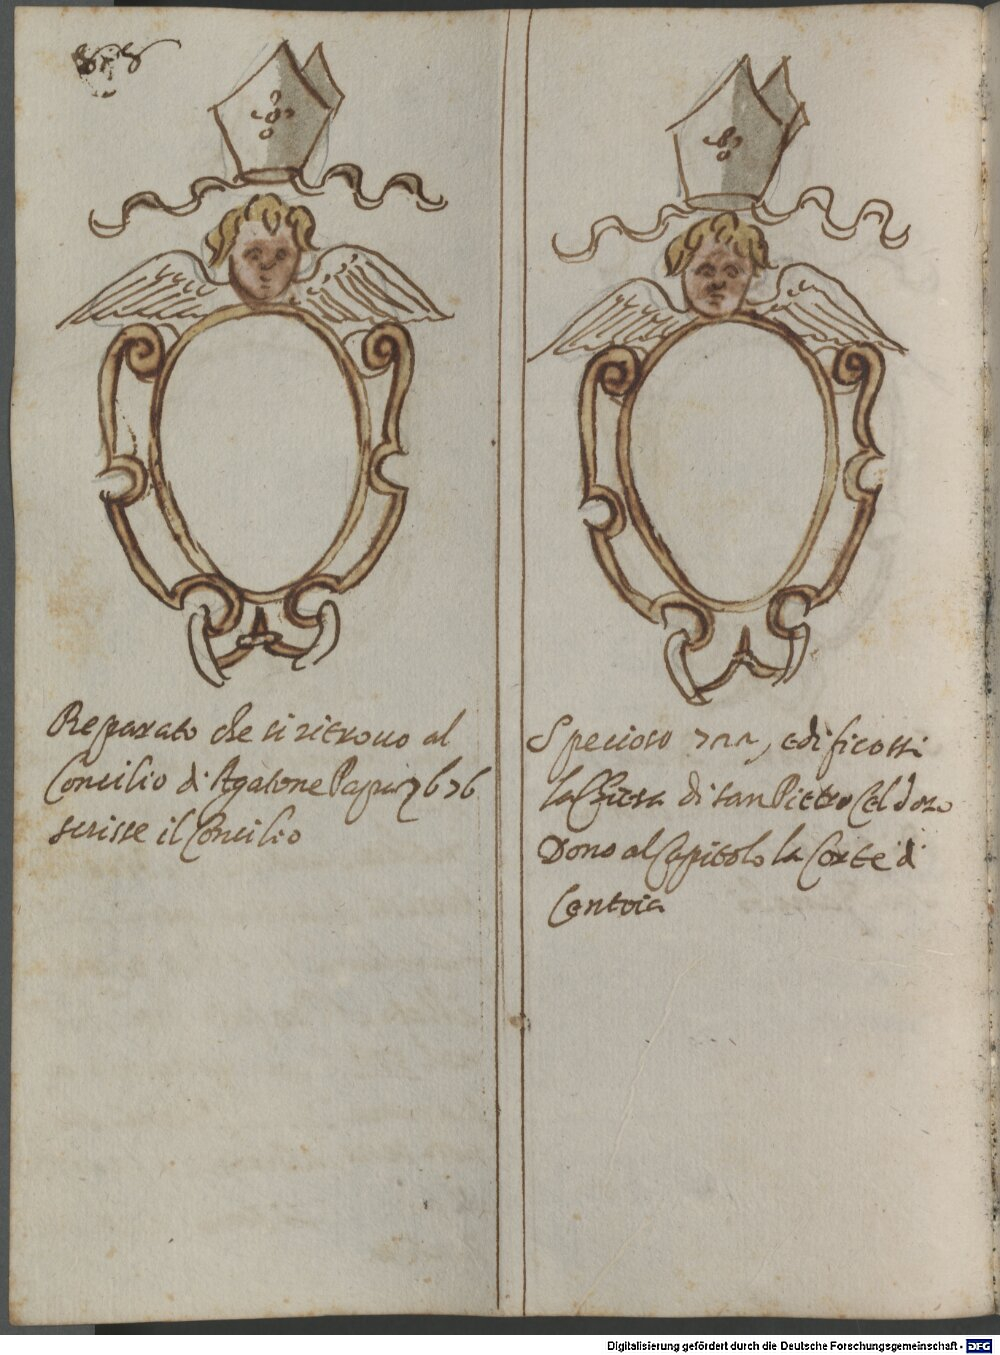 Reparato che si ritrouo al
Concilio di Agatone Papa 7676
scrisse il Concilio
Specioso 7 edificossi
la Chiesa di san Pietro Cel doro
Dono al Capitolo la Corte di
Centoia
Digitalisierung gefördert durch die Deutsche Forschungsgemeinschaft - DFG